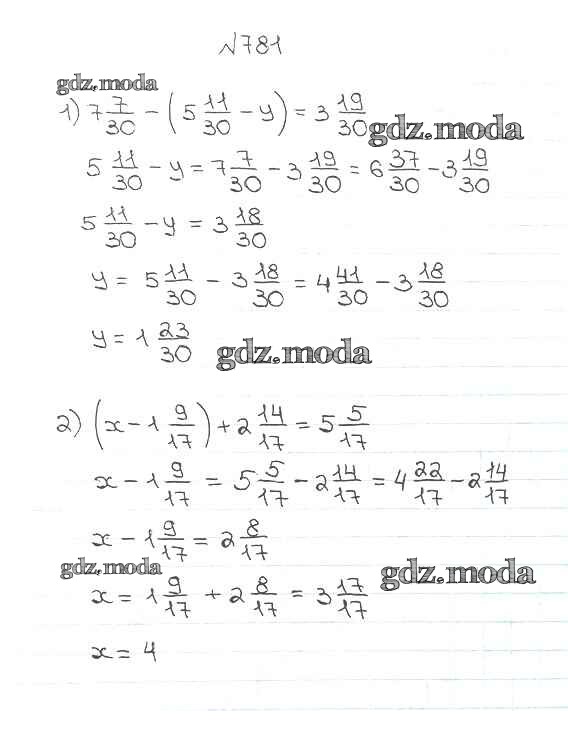 №781
gdz.moda
1) 7 7/30 - (5 11/30 - y) = 3 19/30
gdz.moda
5 11/30 - y = 7 7/30 - 3 19/30 = 6 37/30 - 3 19/30
5 11/30 - y = 3 18/30
y = 5 11/30 - 3 18/30 = 4 41/30 - 3 18/30
y = 1 23/30
gdz.moda
2) (x - 1 9/17) + 2 14/17 = 5 5/17
x - 1 9/17 = 5 5/17 - 2 14/17 = 4 22/17 - 2 14/17
x - 1 9/17 = 2 8/17
gdz.moda
gdz.moda
x = 1 9/17 + 2 8/17 = 3 17/17
x = 4